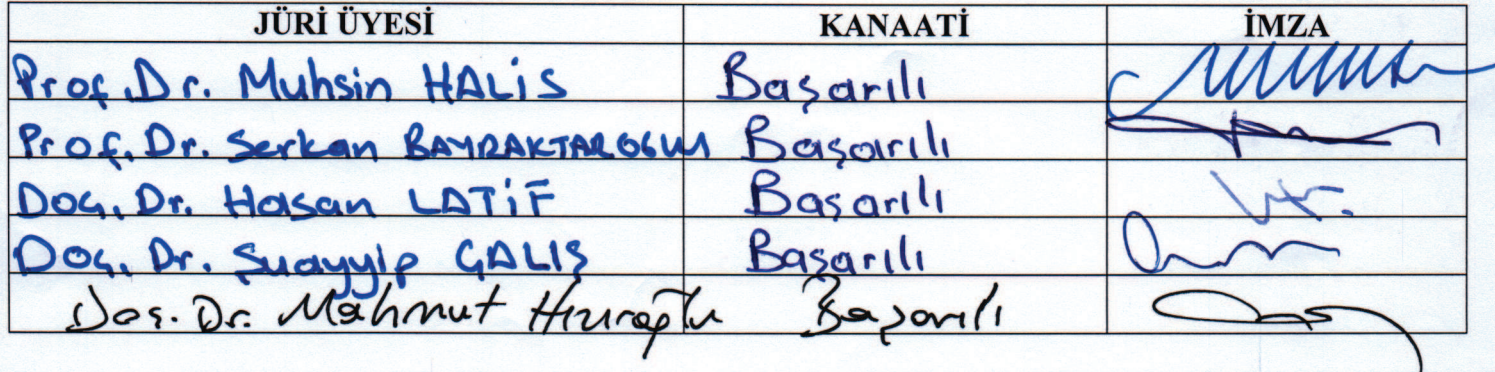 JÜRİ ÜYESİ KANAATİ İMZA
Prof. Dr. Muhsin HALİS Başarılı
Prof. Dr. Serkan BAYRAKTAROGLU Başarılı
Doç. Dr. Hasan LATİF Başarılı
Doç. Dr. Şuayyip ÇALIŞ Başarılı
Doç. Dr. Mahmut Hızıroğlu Başarılı